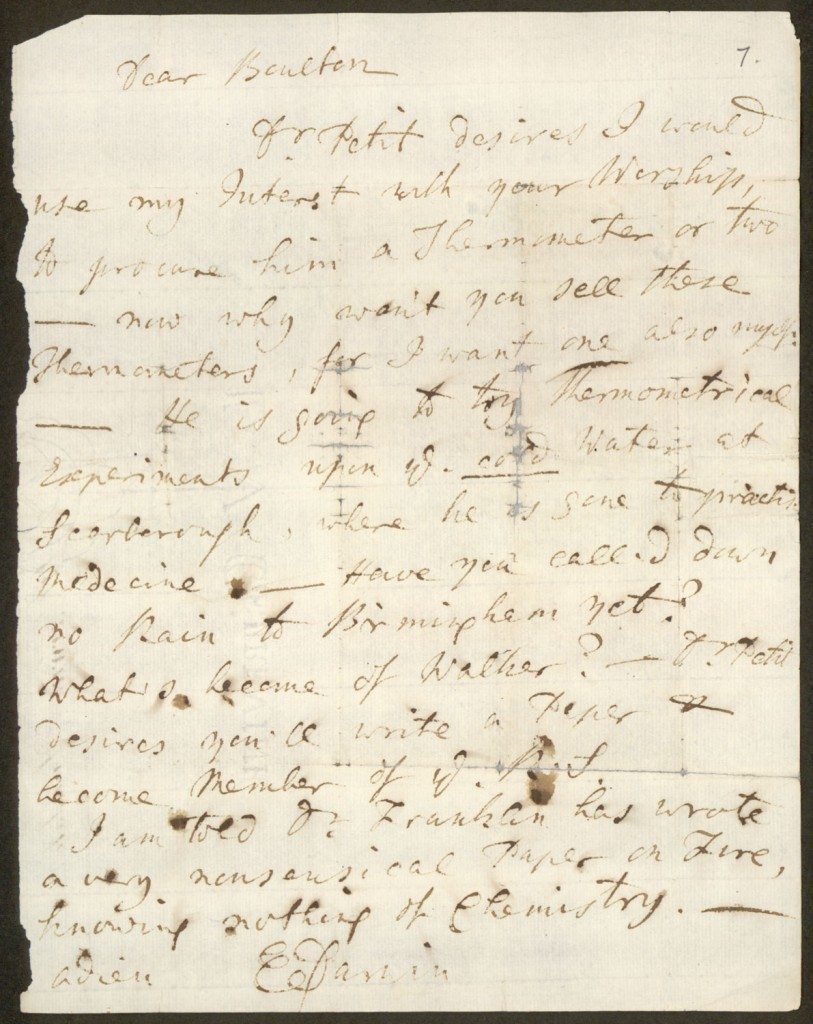 7.
Dear Boulton
Dr Petit desires I would
use my Interest with your Worship, —
to procure him a Thermometer or two
— now why won't you sell these
Thermometers, for I want one also myself.
— He is going to try Thermometrical
Experiments upon ye. cold Water at
Scarborough, where he is gone to practise
Medecine. — Have you call'd down
no Rain to Birmingham yet?
What's become of Walker? — Dr Petit
desires you'll write a Paper &
become Member of ye. R. S.
I am told Dr Franklin has wrote
a very nonsensical Paper on Fire,
knowing nothing of Chemistry. —
adieu E Darwin